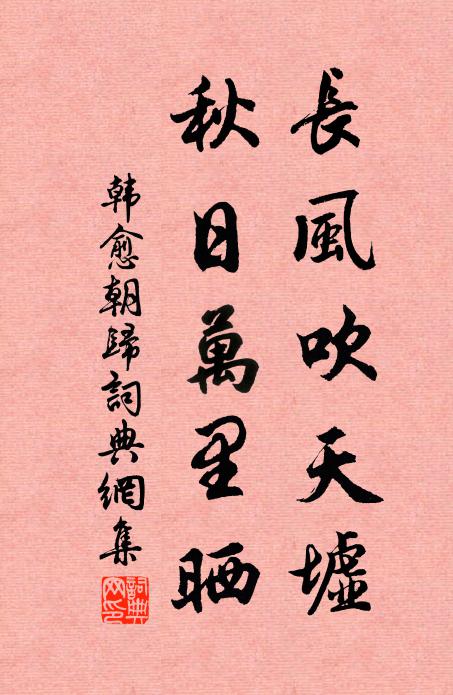 長風吹天墟
秋日萬里晒
韩愈朝歸詞典網集
詞典网印